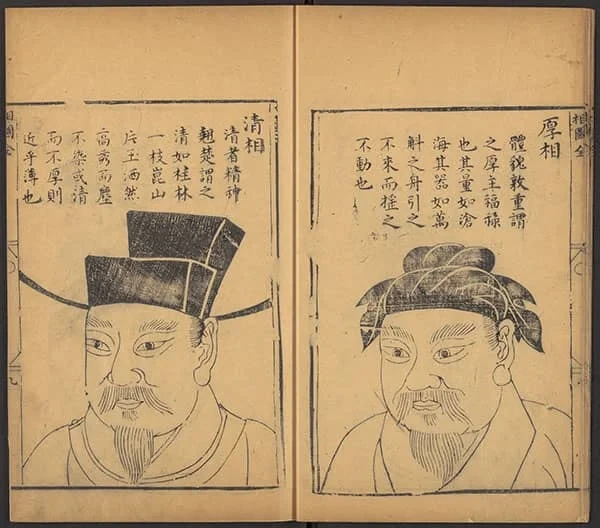 厚相
體貌敦重謂
之厚主福祿
也其量如滄
海其器如萬
斛之舟引之
不來而搖之
不動也
清相
清者精神
翹楚謂之
清如桂林
一枝崑山
片玉洒然
高秀而塵
不染或清
而不厚則
近乎薄也